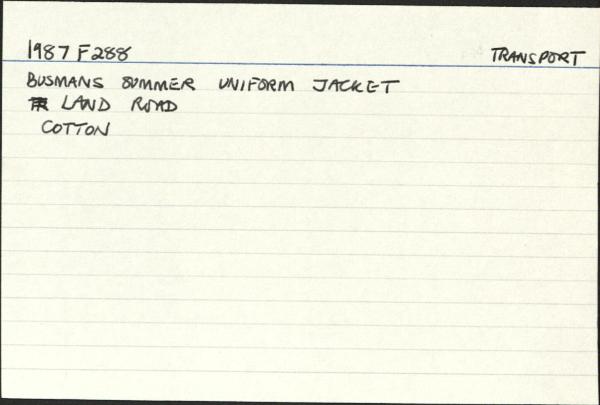 1987 F288 TRANSPORT
BUSMANS SUMMER UNIFORM JACKET
LAND ROAD
COTTON